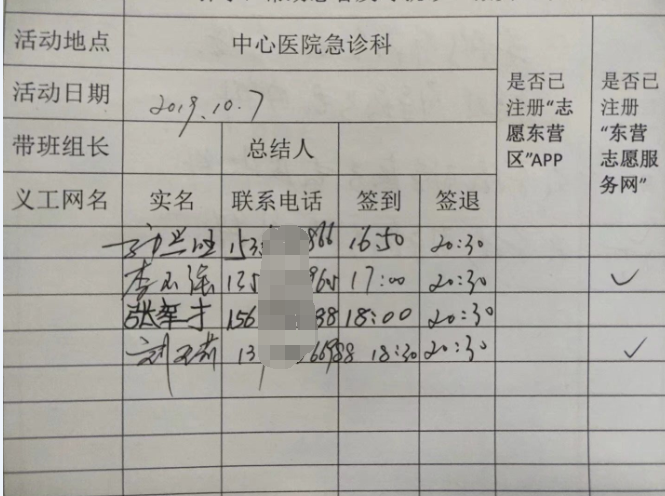 活动地点 中心医院急诊科 是否已注册“志愿东营区”APP 是否已注册“东营志愿服务网”
活动日期 2019.10.7
带班组长 总结人
义工网名 实名 联系电话 签到 签退
153 866 16:50 20:30
李玉瑶 135 965 17:00 20:30 ✓
张军才 156 38 18:00 20:30
刘 13 18:30 20:30 ✓